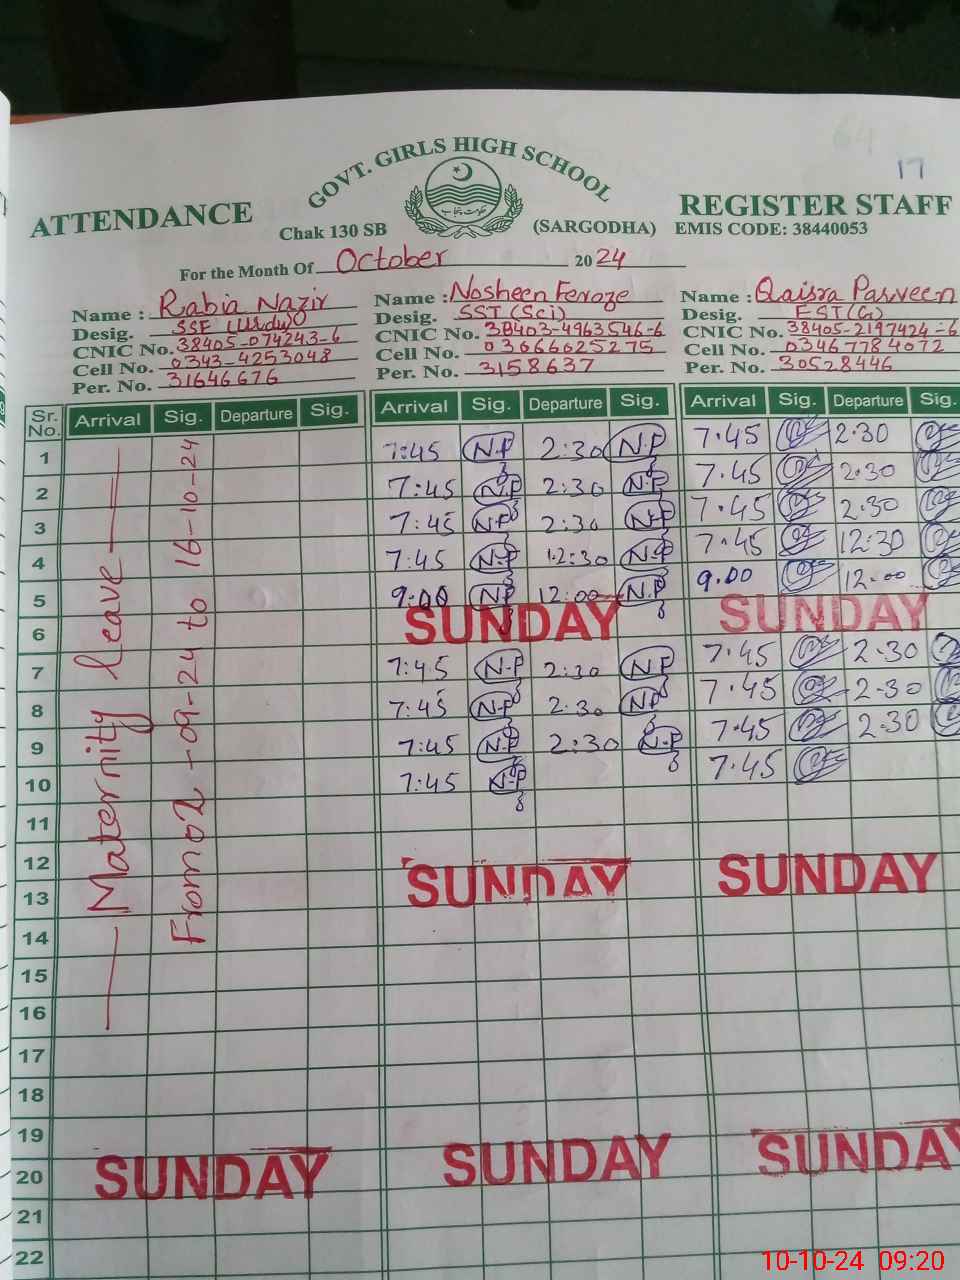 17
GOVT. GIRLS HIGH SCHOOL
ATTENDANCE
REGISTER STAFF
Chak 130 SB
(SARGODHA)
EMIS CODE: 38440053
For the Month Of October 2024
Name : Rabia Nazir
Desig. SSE (Urdu)
CNIC No. 38405-074243-6
Cell No. 0343-4253048
Per. No. 31646676
Name : Nosheen Feroze
Desig. SST (Sci)
CNIC No. 38403-4963546-6
Cell No. 03066025275
Per. No. 3158637
Name : Qaisra Parveen
Desig. EST(G)
CNIC No. 38405-2197424-6
Cell No. 03467784072
Per. No. 30528446
Sr. No. Arrival Sig. Departure Sig. Arrival Sig. Departure Sig. Arrival Sig. Departure Sig.
1 7:45 N.P 2:30 N.P 7.45 2:30
2 7:45 N.P 2:30 N.P 7.45 2.30
3 7:45 N.P 2:30 N.P 7.45 2:30
4 7:45 N.P 12:30 N.P 7.45 12:30
5 9:00 N.P 12:00 N.P 9.00 12.00
6 SUNDAY SUNDAY
7 7:45 N.P 2:30 N.P 7.45 2.30
8 7:45 N.P 2.30 N.P 7.45 2.30
9 7:45 N.P 2:30 N.P 7.45 2.30
10 7:45 N.P 7.45
11
12
13 SUNDAY SUNDAY
14
15
16
17
18
19
20 SUNDAY SUNDAY SUNDAY
21
22
Maternity leave
From 02-09-24 to 16-10-24
10-10-24 09:20